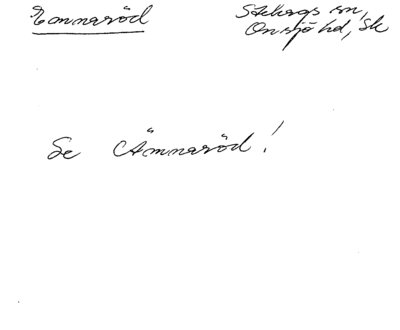 Emmaröd
Stehags sn,
Onsjö hd, Sk
Se Ämmaröd!